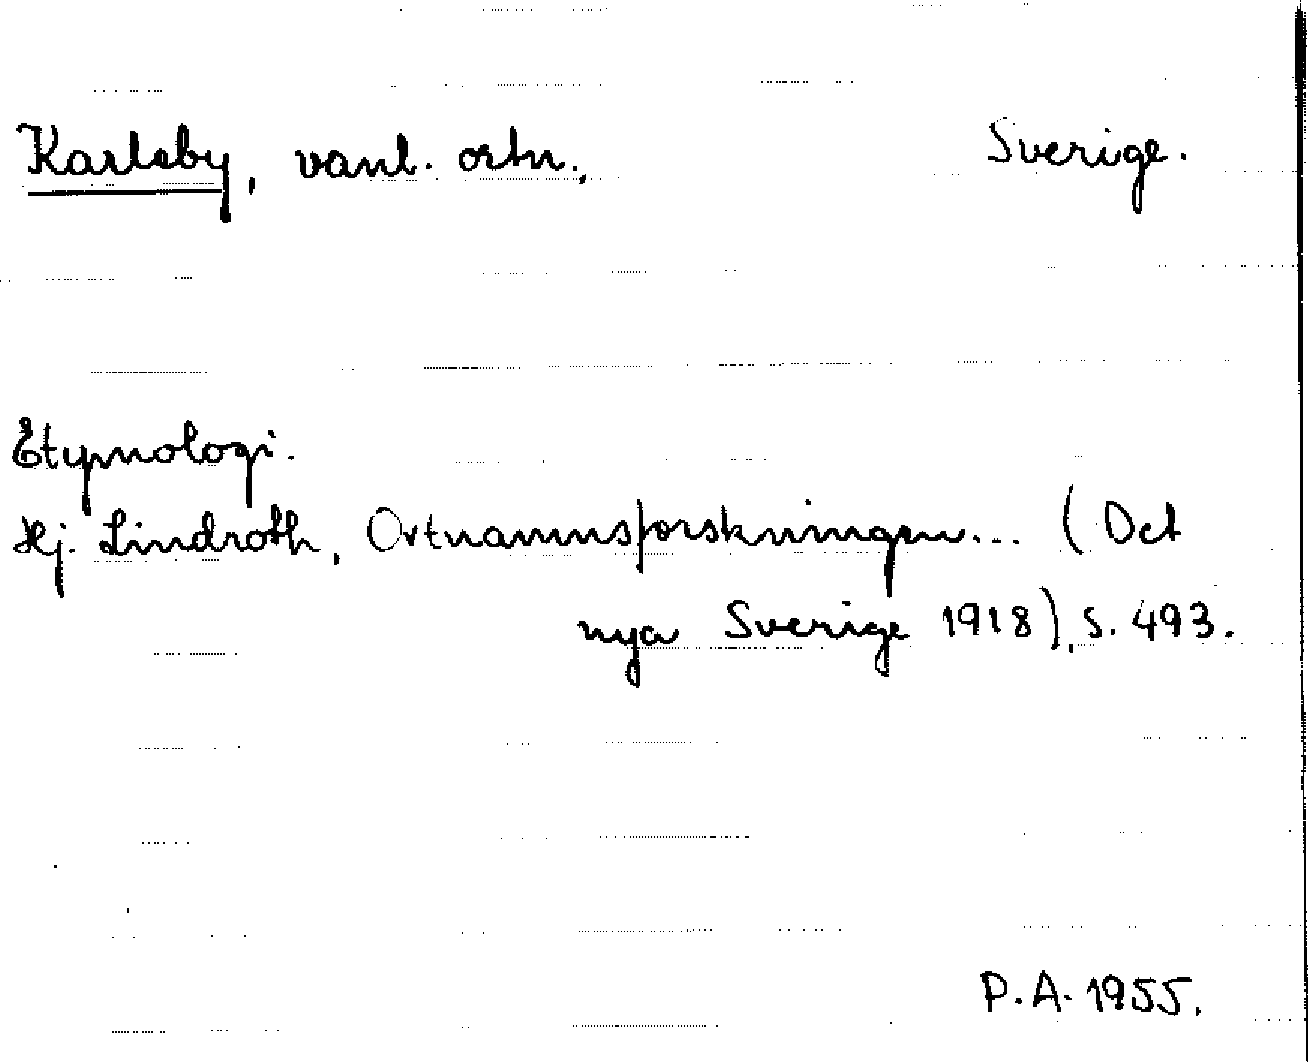 Karlsby, vanl. ortn., Sverige.
Etymologi.
Hj. Lindroth, Ortnamnsforskningen... (Det
nya Sverige 1918), s. 493.
P.A. 1955.